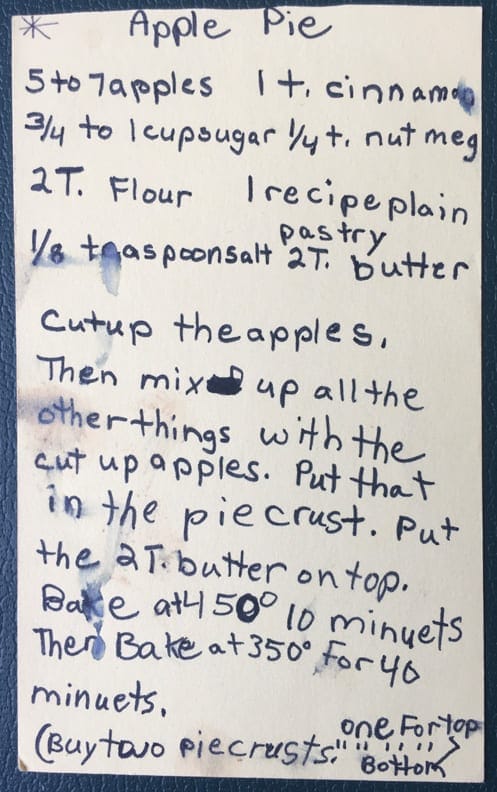 Apple Pie
5 to 7 apples 1 t. cinnamon
3/4 to 1 cup sugar 1/4 t. nutmeg
2T. Flour 1 recipe plain pastry
1/8 teaspoon salt 2T. butter
Cut up the apples.
Then mix up all the
other things with the
cut up apples. Put that
in the pie crust. Put
the 2T. butter on top.
Bake at 450° 10 minuets
Then Bake at 350° for 40
minuets.
(Buy two pie crusts." one For top
" " " " Bottom